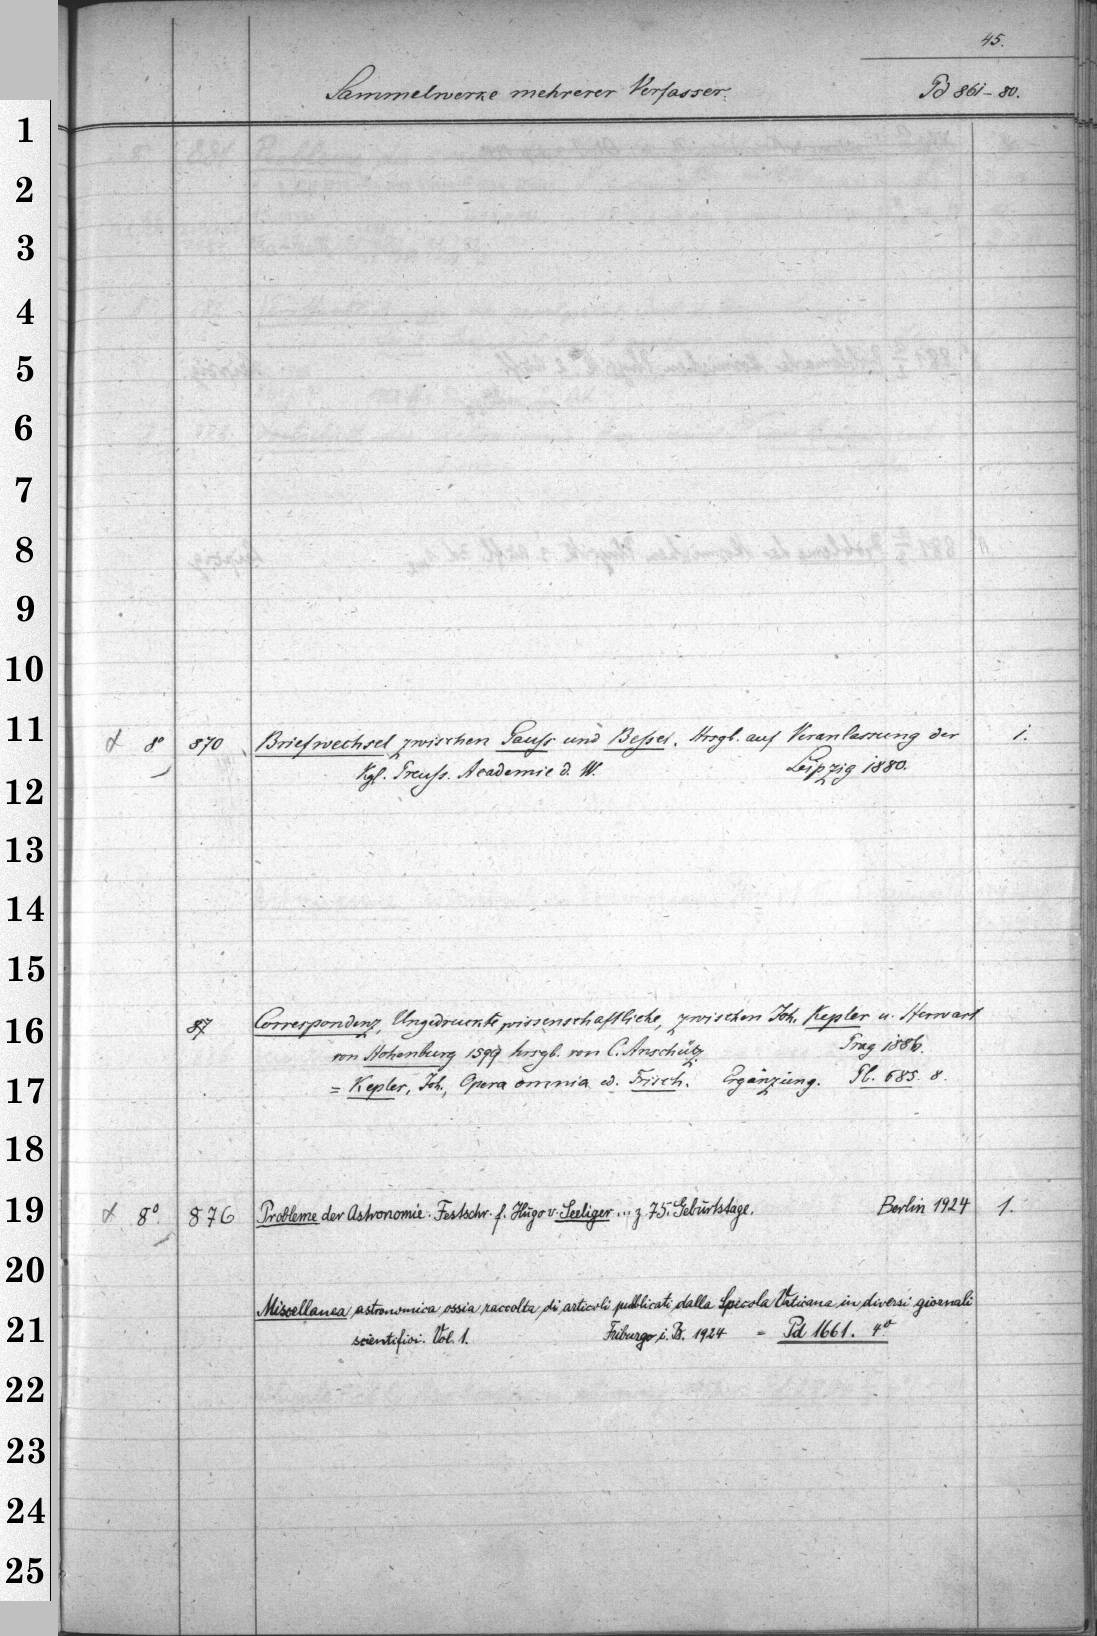 45.
Sammelwerke mehrerer Verfasser. Pd 861-80.
1
2
3
4
5
6
7
8
9
10
11
α 8° 870 Briefwechsel zwischen Gauss und Bessel. Hrsgl. auf Veranlassung der 1.
Kgl. Preuss. Academie d. W. Leipzig 1880.
12
13
14
15
16
87 Correspondenz, Ungedruckte wissenschaftliche, zwischen Joh. Kepler u. Herwart
von Hohenburg 1599 hrsgl. von C. Anschütz. Prag 1886.
17
= Kepler, Joh., Opera omnia ed. Frisch. Ergänzung. Pl. 685. 8.
18
19
α 8° 876 Probleme der Astronomie. Festschr. f. Hugo v. Seeliger ... z 75. Geburtstage. Berlin 1924 1.
20
Miscellanea astronomica ossia raccolta di articoli pubblicati dalla Specola Vaticana in diversi giornali
21
scientifici. Vol. 1. Friburgo i. B. 1924 = Pd 1661. 4°
22
23
24
25